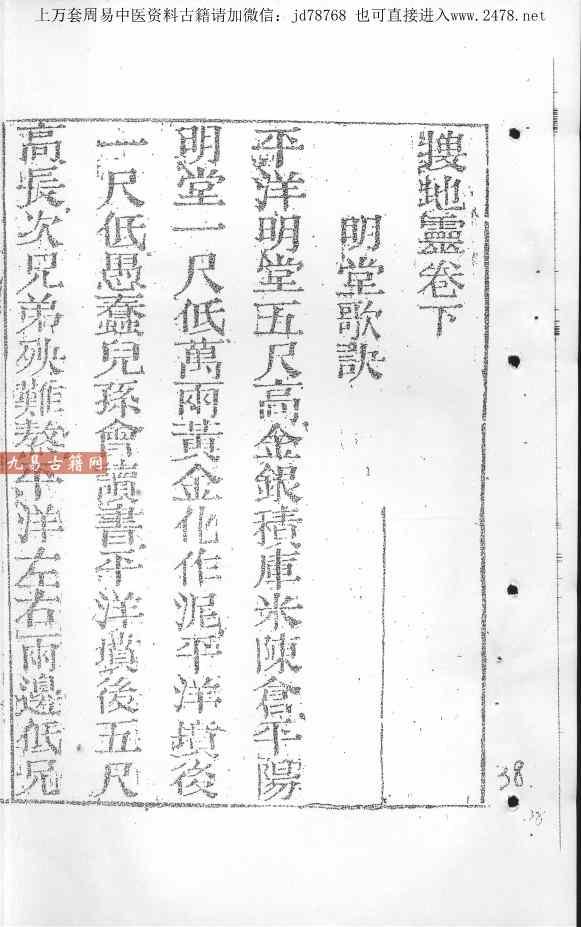 上万套周易中医资料古籍请加微信：jd78768 也可直接进入www.2478.net
搜地靈卷下
明堂歌訣
平洋明堂五尺高金銀積庫米陳倉平陽
明堂一尺低萬兩黃金化作泥平洋墳後
一尺低愚蠢兒孫會讀書平洋墳後五尺
高長次兄弟殃難熬平洋左右兩邊低兄
九易古籍网
38